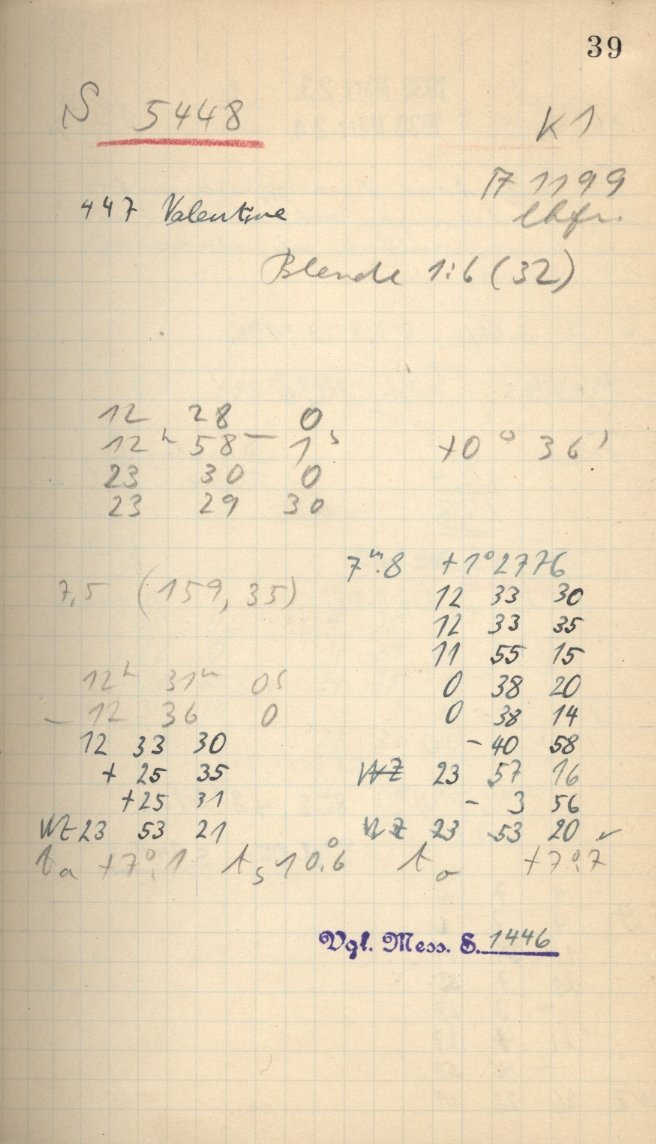 39
S 5448
K 1
447 Valentine
1199
Blende 1:6 (32)
12 28 0
12ʰ 58ᵐ 1ˢ +0° 36'
23 30 0
23 29 30
7ᵐ.8 +1°2776
7,5 (159, 35)
12 33 30
12 33 35
11 55 15
12ʰ 31ᵐ 0ˢ 0 38 20
– 12 36 0 0 38 14
12 33 30 – 40 58
+ 25 35 WZ 23 57 16
+25 31 – 3 56
WZ 23 53 21 WZ 23 53 20 ✓
tₐ +7°.1 tₛ 10°.6 +7°.7
Vgl. Mess. S. 1446